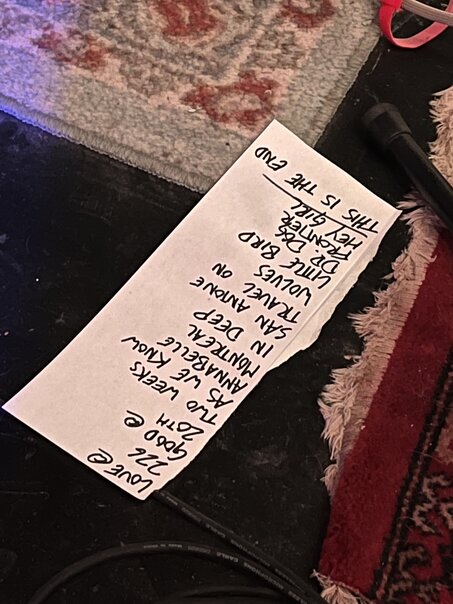 LOVE @
222
GOOD @
20TH
TWO WEEKS
AS WE KNOW
ANNABELLE
MONTREAL
IN DEEP
SAN ANTONE
TRAVEL ON
WOLVES
LITTLE BIRD
DR. DOG
FRONTIER
HEY GIRL
THIS IS THE END